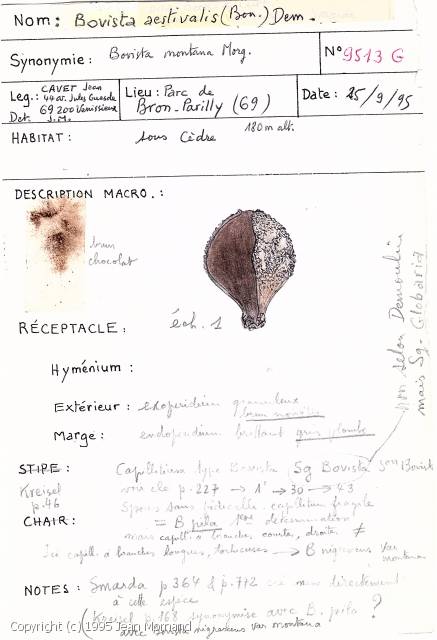 Nom: Bovista aestivalis (Bon.) Dem.
Synonymie: Bovista montana Morg.
N° 9513 G
Leg.: CAVET Jean
44 av. Jules Guesde
69200 Venissieux
Det. J.M.
Lieu: Parc de
Bron-Parilly (69)
Date: 25/9/95
HABITAT: sous Cèdre
180 m alt.
DESCRIPTION MACRO.:
brun
chocolat
RÉCEPTACLE: éch. 1
non selon Demoulin
mais Sg. Globaria
Hyménium:
Extérieur: exoperidium granuleux
Marge: endoperidium gris plombe
STIPE: Capillitium type Bovista, Sg Bovista Son Bovista
Kreisel
p.46
voir clé p.227 → 1' → 30 → 43
CHAIR:
Spores sans capillitium fragile
= B pila 1ère détermination
mais capill. à branches courtes, droites ≠
Ici capill. à branches longues, → B nigrescens var
montana
NOTES: Smarda p 364 & p.772 directement
à cette espèce
(Kreisel p.168 synonymise avec B. pila ?
avec Bovista nigrescens var montana
Copyright (c) 1995 Jean Mornand